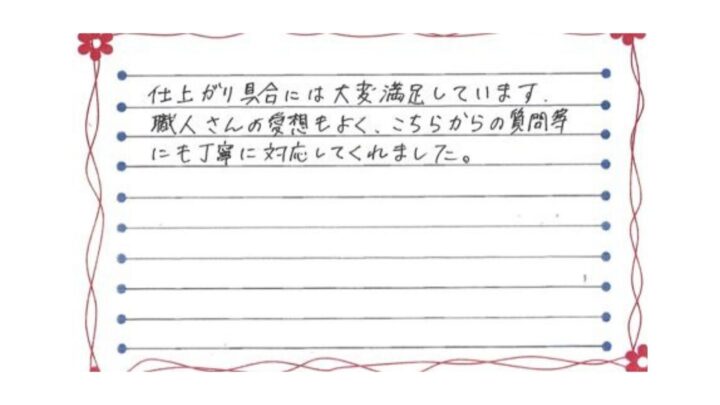 仕上がり具合には大変満足しています.
職人さんの愛想もよく、こちらからの質問等
にも丁寧に対応してくれました。